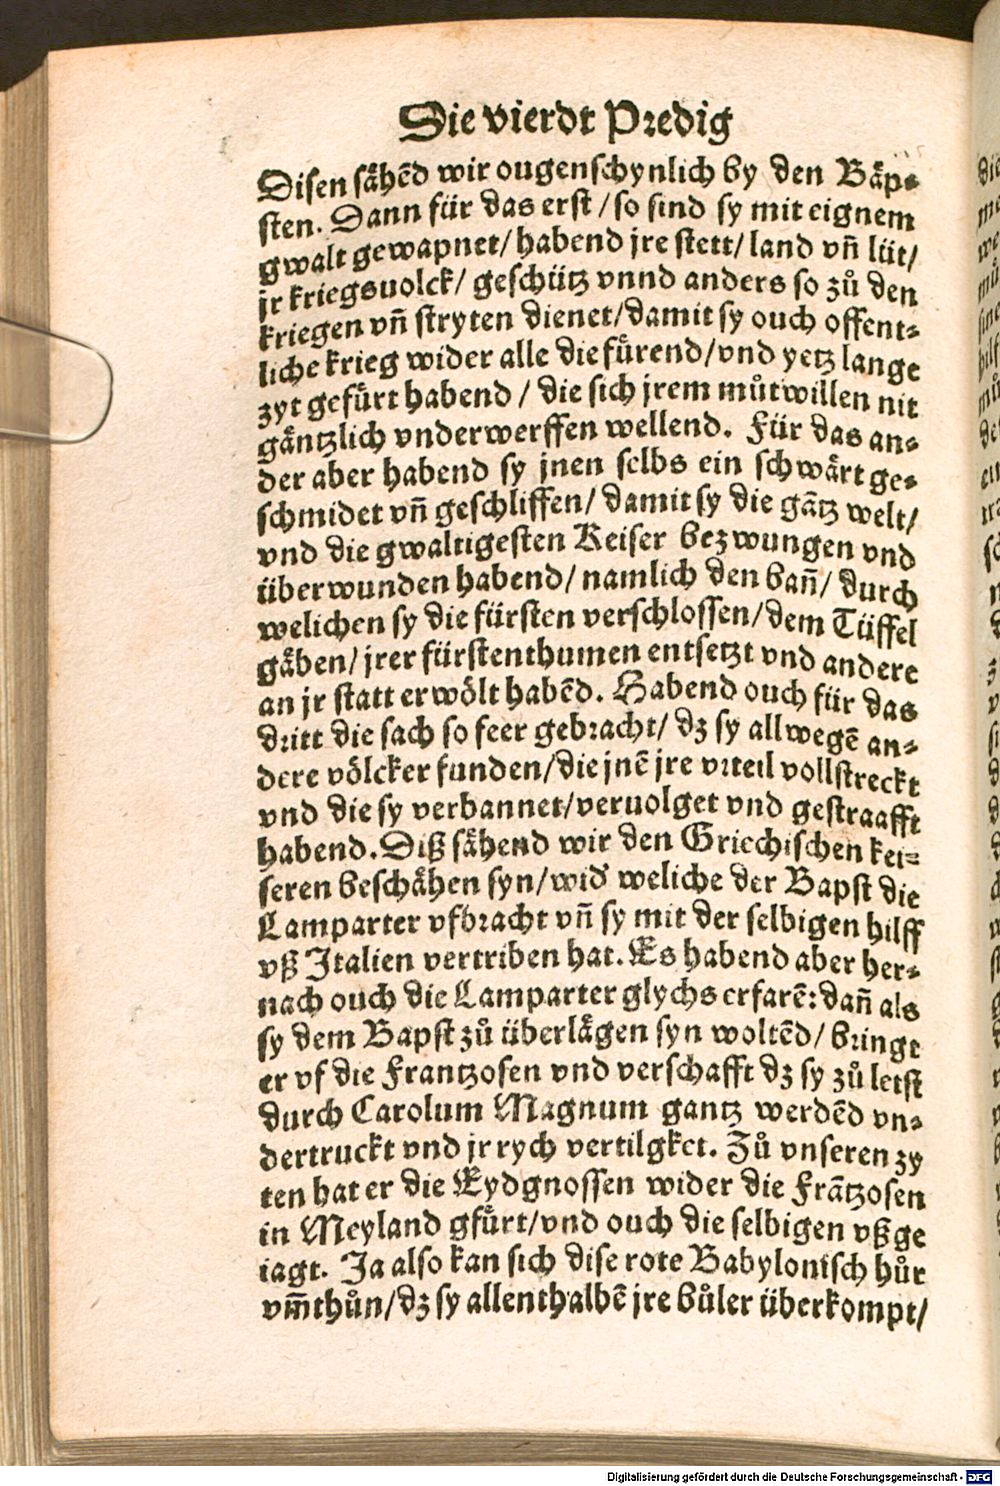 Die vierdt Predig
Disen sähēd wir ougenschynlich by den Bäp⸗
sten. Dann für das erst / so sind sy mit eignem
gwalt gewapnet / habend jre stett / land vñ lüt /
jr kriegsuolck / geschütz vnnd anders so zů den
kriegen vñ stryten dienet / damit sy ouch offent⸗
liche krieg wider alle die fürend / vnd yetz lange
zyt gefürt habend / die sich jrem můtwillen nit
gäntzlich vnderwerffen wellend. Für das an⸗
der aber habend sy jnen selbs ein schwärt ge⸗
schmidet vñ geschliffen / damit sy die gātz welt /
vnd die gwaltigesten Keiser bezwungen vnd
überwunden habend / namlich den bañ / durch
welichen sy die fürsten verschlossen / dem Tüffel
gäben / jrer fürstenthumen entsetzt vnd andere
an jr statt erwölt habēd. Habend ouch für das
dritt die sach so feer gebracht / dz sy allwegē an⸗
dere völcker funden / die jnē jre vrteil vollstreckt
vnd die sy verbannet / veruolget vnd gestraafft
habend. Diß sähend wir den Griechischen kei⸗
seren beschähen syn / wid' weliche der Bapst die
Lamparter vfbracht vñ sy mit der selbigen hilff
vß Italien vertriben hat. Es habend aber her⸗
nach ouch die Lamparter glychs erfarē: dañ als
sy dem Bapst zů überlägen syn woltēd / bringt
er vf die Frantzosen vnd verschafft dz sy zů letst
durch Carolum Magnum gantz werdēd vn⸗
dertruckt vnd jr rych vertilgket. Zů vnseren zy
ten hat er die Eydgnossen wider die Frātzosen
in Meyland gfürt / vnd ouch die selbigen vßge
iagt. Ja also kan sich dise rote Babylonisch hůr
vm̄thůn / dz sy allenthalbē jre bůler überkompt /
Digitalisierung gefördert durch die Deutsche Forschungsgemeinschaft - DFG